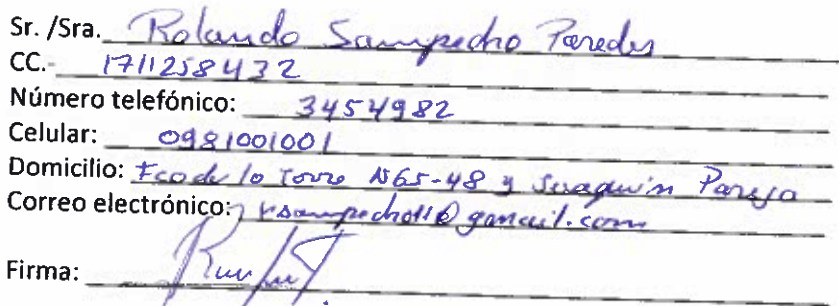 Sr. /Sra. Rolando Sampedro Paredes
CC.- 1711258432
Número telefónico: 3454982
Celular: 0981001001
Domicilio: Fco de la Torre N65-48 y Joaquin Pareja
Correo electrónico: rsampedro11@gmail.com
Firma: